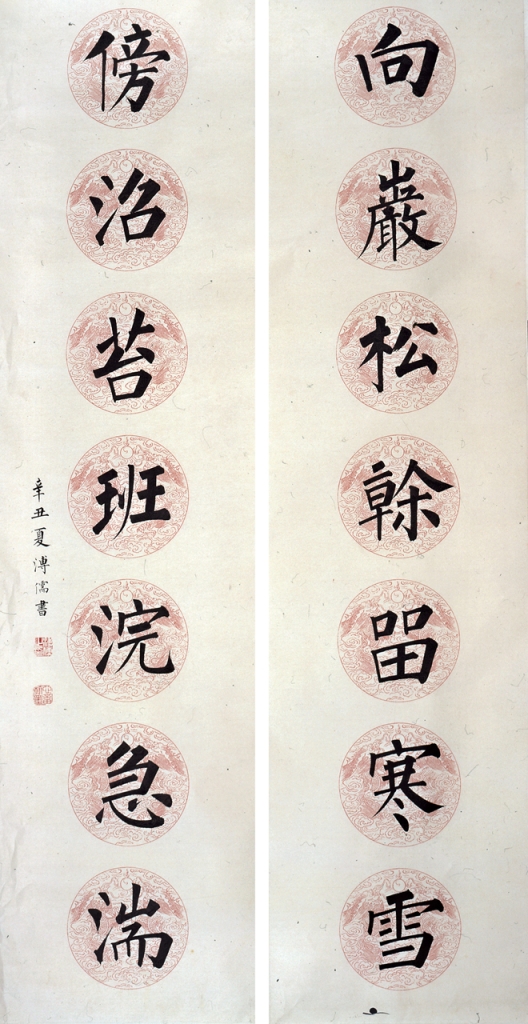 向巖松榦㽞寒雪
傍沼苔班浣急湍
辛丑夏溥儒書